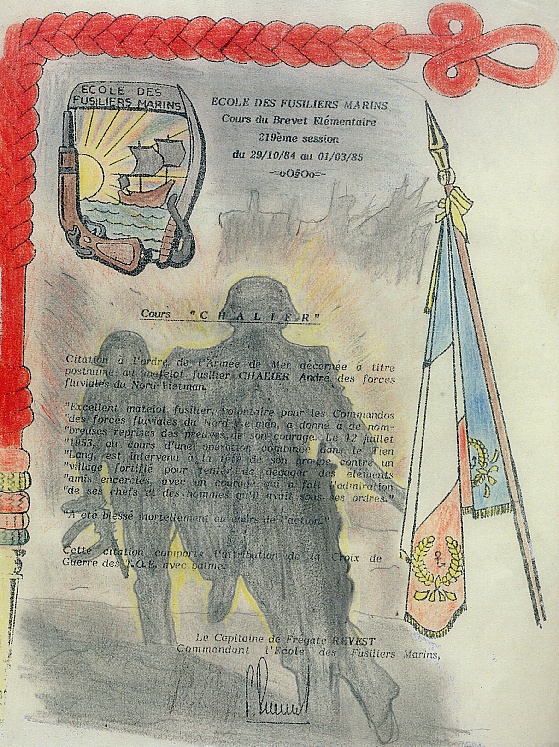 ECOLE DES
FUSILIERS MARINS
ECOLE DES FUSILIERS MARINS
Cours du Brevet Elémentaire
219ème session
du 29/10/84 au 01/03/85
—oO§Oo—
Cours "CHALIER"
Citation à l'ordre de l'Armée de Mer décernée à titre
posthume au matelot fusilier CHALIER André des forces
fluviales du Nord-Vietman.
"Excellent matelot fusilier, volontaire pour les Commandos
"des forces fluviales du Nord Vietman, a donné de nom-
"breuses reprises des preuves de son courage. Le 12 juillet
"1953, au cours d'une opération combinée dans le Tien
"Lang, est intervenu à la tête de son groupe contre un
"village fortifié pour tenter de dégager des éléments
"amis encerclés, avec un courage qui a fait l'admiration
"de ses chefs et des hommes qu'il avait sous ses ordres."
"A été blessé mortellement au cours de l'action."
Cette citation comporte l'attribution de la Croix de
Guerre des T.O.E. avec palme.
Le Capitaine de Frégate REVEST
Commandant l'Ecole des Fusiliers Marins,